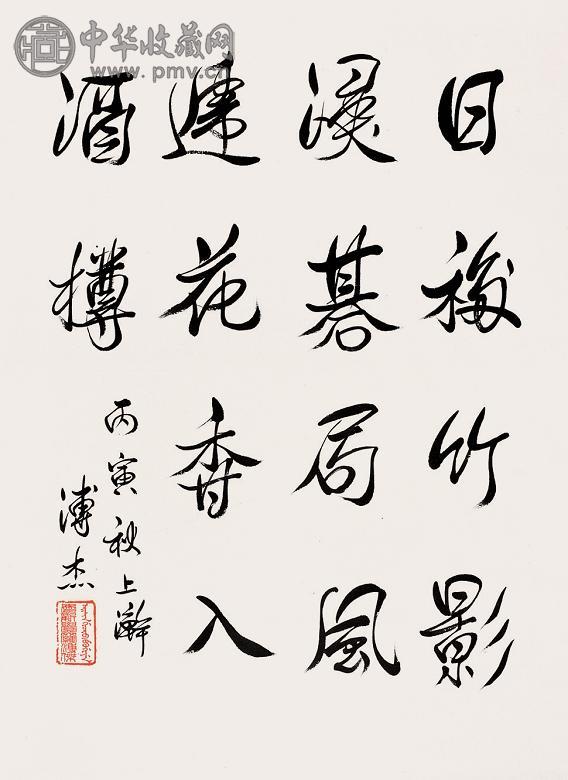 中华收藏网
www.pmv.cn
日移竹影
浸碁局風
遞花香入
酒樽
丙寅秋上澣
溥杰